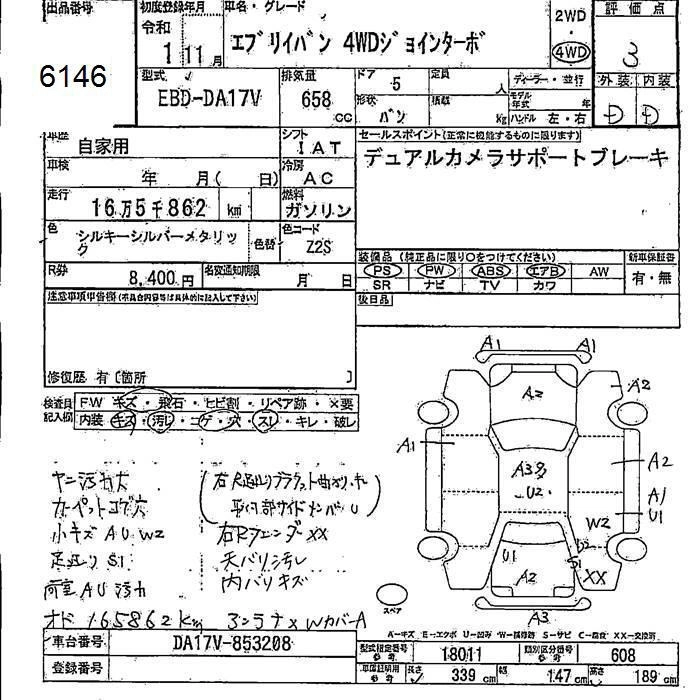 出品番号
6146
初度登録年月
令和
1 11月
車名・グレード
エブリイバン 4WDジョインターボ
2WD
・
4WD
評価点
3
型式
EBD-DA17V
排気量
658 CC
ドア 5
定員 人
ディーラー・並行
形状 バン
積載 kg
モデル年式 年
ハンドル 左・右
外装 内装
D D
車歴
自家用
シフト
IAT
車検
年 月( 日)
冷房
AC
走行
16万5千862 km
燃料
ガソリン
色
シルキーシルバーメタリック
色替
色コード
Z2S
R券
8,400円
名変通知期限
月 日
セールスポイント(正常に機能するものに限ります)
デュアルカメラサポートブレーキ
装備品(純正品に限り○をつけてください)
PS PW ABS エアB AW
SR ナビ TV カワ
新車保証書
有・無
後日品
注意事項申告欄(不具合内容等は具体的に記入して下さい)
修復歴 有〔箇所 〕
検査員記入欄
FW キズ・飛石・ヒビ割・リペア跡・×要
内装 キズ・汚レ・コゲ・穴・スレ・キレ・破レ
ヤニ汚れ大
カーペットコゲ穴
小キズ AU W2
足廻り S1
荷室 AU 汚れ
右Rフェンダー XX
天バリ汚レ
内バリキズ
オド 165862km
A1 A1
A2
A2
A1
A3多
U2
A2
A1
U1
W2
U2
S1
U1
A2
XX
A3
スペア
A-キズ E-エクボ U-凹み W-補修跡 S-サビ C-腐食 XX-交換済
車台番号
DA17V-853208
登録番号
型式指定番号 参考
18011
類別区分番号 参考
608
車庫証明用 参考
長さ 339 cm
幅 147 cm
高さ 189 cm